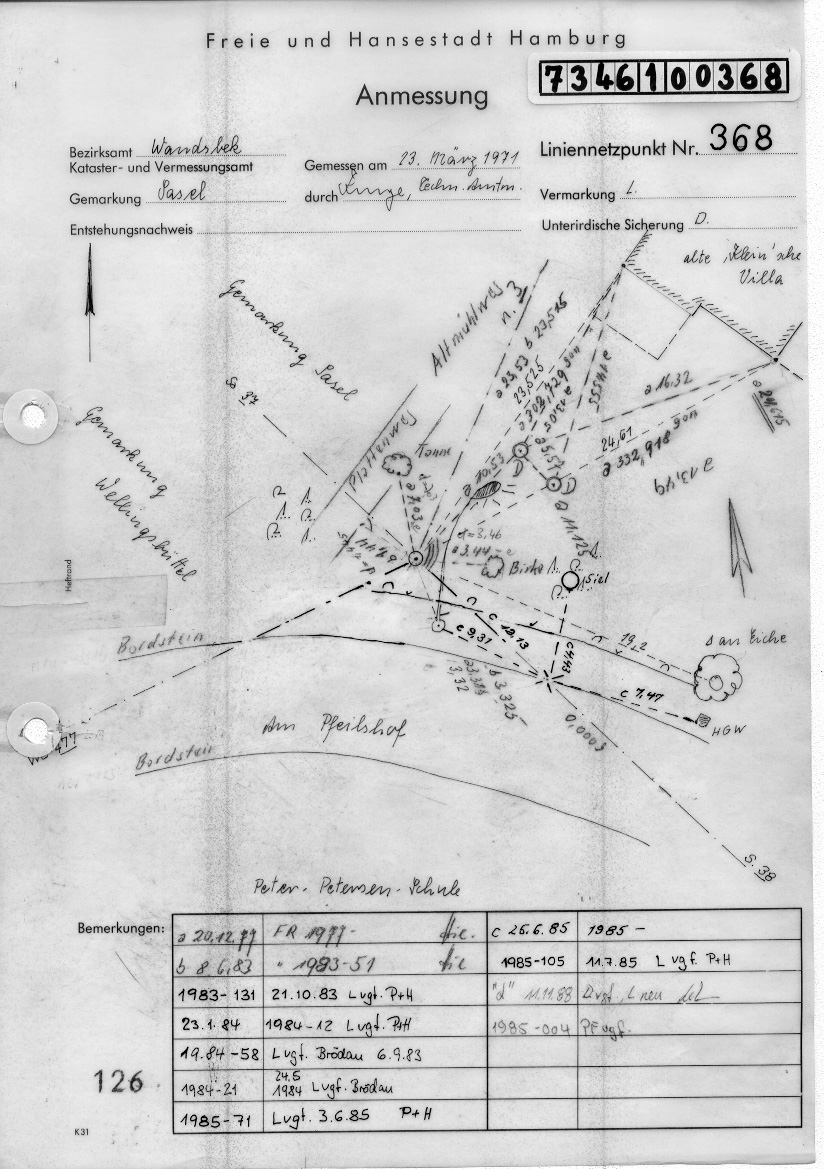 Freie und Hansestadt Hamburg
7346100368
Anmessung
Bezirksamt Wandsbek
Kataster- und Vermessungsamt
Gemarkung Sasel
Entstehungsnachweis
Gemessen am 23. März 1971
durch
Liniennetzpunkt Nr. 368
Vermarkung L.
Unterirdische Sicherung D.
alte "Klein'sche
Villa
Gemarkung Sasel
Altmühlweg
n. 31
a 23,53 b 23,515
23,525
a 16,32
a 24,615
24,61
a 332,918 gon
S. 37
Gemarkung
Wellingsbüttel
Plattenweg
Tanne
a 10,53
D
a 11,125
d=3,46
a 3,44
Birke
Siel
Heftrand
Bordstein
c 9,31
c 12,13
c 4,43
19,2
San Eiche
c 7,47
HGW
b 3,325
3,32
0,0003
Am Pfeilshof
Bordstein
S. 38
Peter-Petersen-Schule
Bemerkungen:
a 20.12.77 FR 1977-
c 26.6.85 1985 -
b 8.6.83 " 1983-51
1985-105 11.7.85 L vgf. P+H
1983-131 21.10.83 L vgf. P+H
"d" 11.11.88 D vgf. L neu
23.1.84 1984-12 L vgf. P+H
1985-004 PF vgf.
19.84-58 L vgf. Brödau 6.9.83
1984-21 24.5 1984 L vgf. Brödau
1985-71 L vgt. 3.6.85 P+H
126
K31